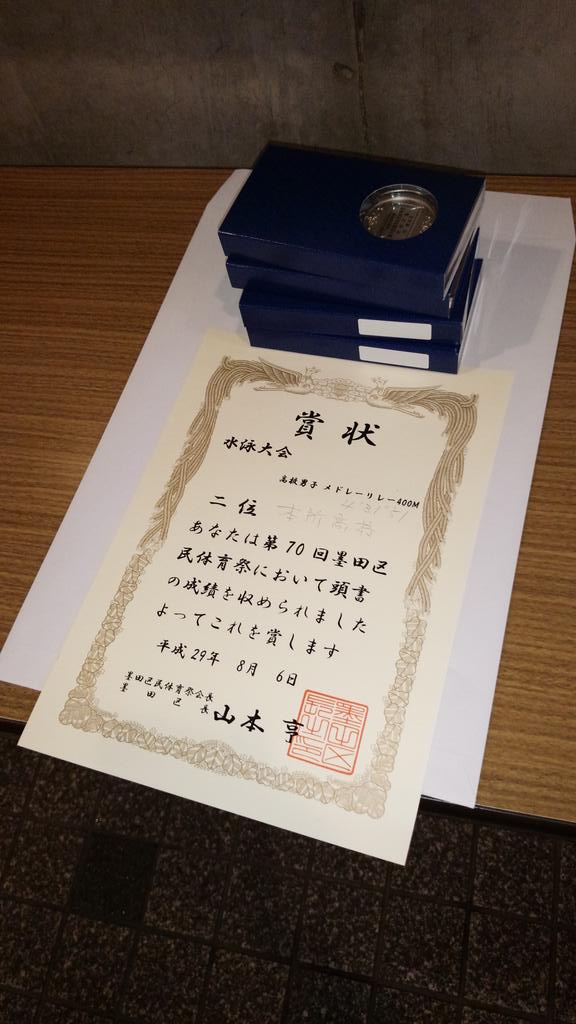 賞状
水泳大会
高校男子 メドレーリレー400M
二位 本所高校
あなたは第70回墨田区
民体育祭において頭書
の成績を収められました
よってこれを賞します
平成29年 8月 6日
墨田区民体育祭会長
墨田区長 山本 亨